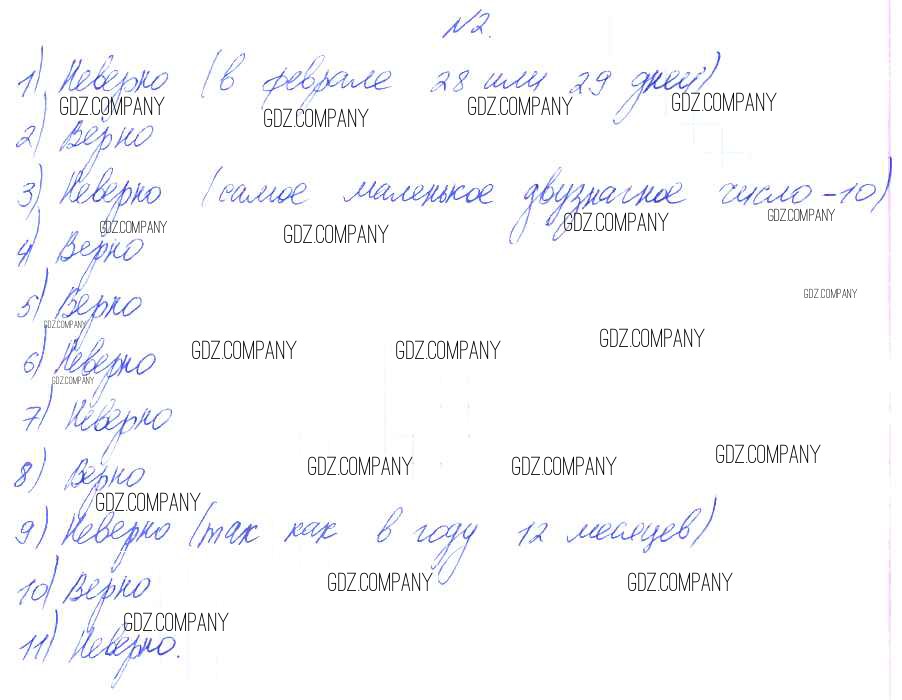 №2.
1) Неверно (в феврале 28 или 29 дней)
GDZ.COMPANY GDZ.COMPANY GDZ.COMPANY GDZ.COMPANY
2) Верно
3) Неверно (самое маленькое двузначное число – 10)
GDZ.COMPANY GDZ.COMPANY GDZ.COMPANY GDZ.COMPANY
4) Верно
GDZ.COMPANY
5) Верно
GDZ.COMPANY
GDZ.COMPANY GDZ.COMPANY GDZ.COMPANY
6) Неверно
GDZ.COMPANY
7) Неверно
GDZ.COMPANY GDZ.COMPANY GDZ.COMPANY
8) Верно
GDZ.COMPANY
9) Неверно (так как в году 12 месяцев)
10) Верно
GDZ.COMPANY GDZ.COMPANY
GDZ.COMPANY
11) Неверно.